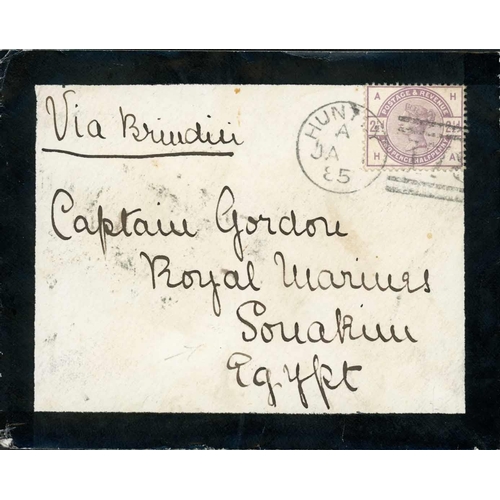 Via Brindisi
HUNT
A
JA
85
A H
POSTAGE & REVENUE
H A
Captain Gordon
Royal Marines
Souakim
Egypt